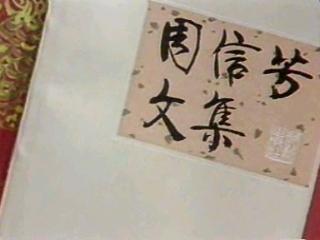 周信芳
文集